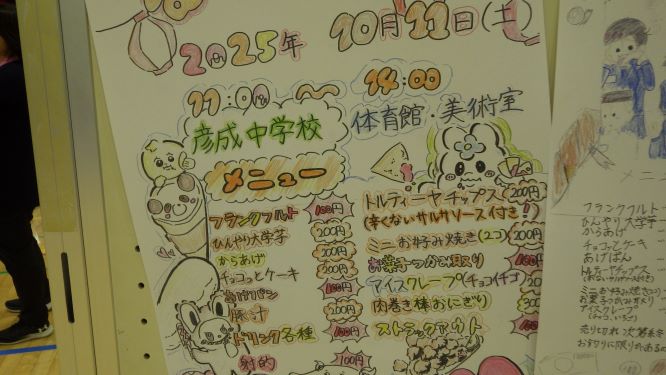 2025年 10月11日(土)
11:00 〜 14:00
彦成中学校 体育館・美術室
メニュー
フランクフルト 100円
ひんやり大学芋 200円
からあげ 200円
チョコっとケーキ 200円
あげパン
豚汁
ドリンク各種 100円
射的 100円
トルティーヤチップス 200円
(辛くないサルサソース付き!)
ミニお好み焼き(2コ) 200円
お菓子つかみ取り
アイスクレープ(チョコ,イチゴ)
肉巻き棒おにぎり
ストラックアウト
メニ
フランクフルト
ひんやり大学芋
からあげ
チョコっとケーキ
あげぱん
トルティーヤチップス
お菓子つかみ取り
アイスクレープ
売り切れ次第終
お釣りに限りがあるの